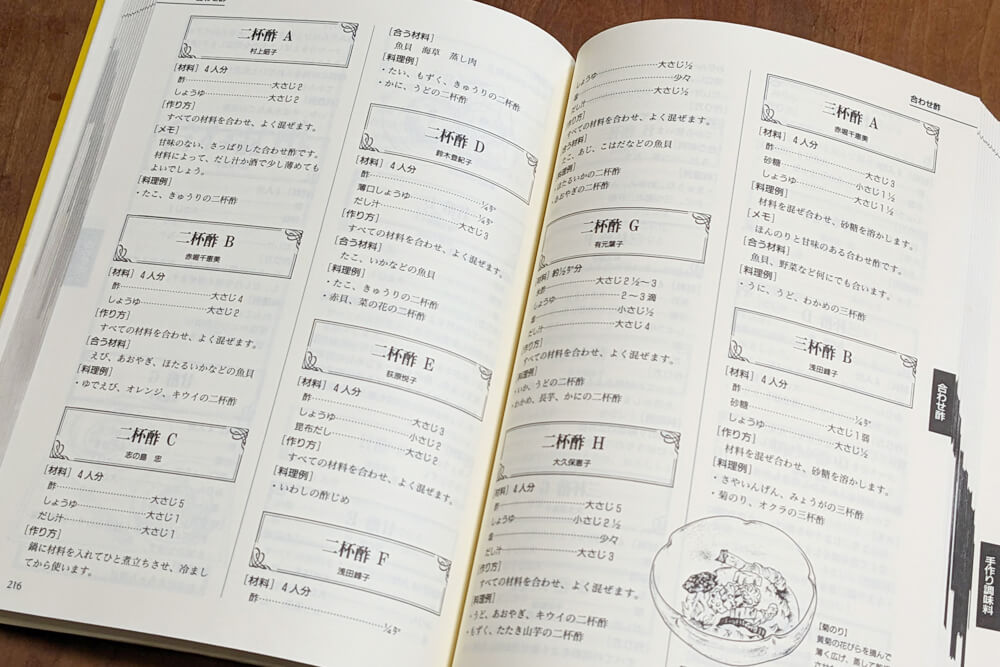 二杯酢 A
村上昭子
[材料] 4人分
酢…………………大さじ2
しょうゆ…………………大さじ2
[作り方]
すべての材料を合わせ、よく混ぜます。
[メモ]
甘味のない、さっぱりした合わせ酢です。
材料によって、だし汁か酒で少し薄めても
よいでしょう。
[料理例]
・たこ、きゅうりの二杯酢
二杯酢 B
赤堀千恵美
[材料] 4人分
酢…………………大さじ4
しょうゆ…………………大さじ2
[作り方]
すべての材料を合わせ、よく混ぜます。
[合う材料]
えび、あおやぎ、ほたるいかなどの魚貝
[料理例]
・ゆでえび、オレンジ、キウイの二杯酢
二杯酢 C
志の島 忠
[材料] 4人分
酢…………………大さじ5
しょうゆ…………………大さじ1
だし汁…………………大さじ1
[作り方]
鍋に材料を入れてひと煮立ちさせ、冷まし
てから使います。
216
[合う材料]
魚貝 海草 蒸し肉
[料理例]
・たい、もずく、きゅうりの二杯酢
・かに、うどの二杯酢
二杯酢 D
鈴木登紀子
[材料] 4人分
酢…………………¼カップ
薄口しょうゆ…………………¼カップ
だし汁…………………大さじ3
[作り方]
すべての材料を合わせ、よく混ぜます。
[合う材料]
たこ、いかなどの魚貝
[料理例]
・たこ、きゅうりの二杯酢
・赤貝、菜の花の二杯酢
二杯酢 E
荻原悦子
[材料] 4人分
酢…………………大さじ3
しょうゆ…………………小さじ2
昆布だし…………………大さじ2
[作り方]
すべての材料を合わせ、よく混ぜます。
[料理例]
・いわしの酢じめ
二杯酢 F
浅田峰子
[材料] 4人分
酢…………………¼カップ
しょうゆ…………………大さじ½
塩…………………少々
だし汁…………………大さじ½
[作り方]
すべての材料を合わせ、よく混ぜます。
[合う材料]
たこ、あじ、こはだなどの魚貝
[料理例]
・ほたるいかの二杯酢
・あおやぎの二杯酢
二杯酢 G
有元葉子
[材料] 約½カップ分
米酢…………………大さじ2½〜3
しょうゆ…………………2〜3滴
塩…………………小さじ½
だし汁…………………大さじ4
[作り方]
すべての材料を合わせ、よく混ぜます。
[料理例]
・いか、うどの二杯酢
・わかめ、長芋、かにの二杯酢
二杯酢 H
大久保恵子
[材料] 4人分
酢…………………大さじ5
しょうゆ…………………小さじ2½
塩…………………少々
だし汁…………………大さじ3
[作り方]
すべての材料を合わせ、よく混ぜます。
[料理例]
・うど、あおやぎ、キウイの二杯酢
・もずく、たたき山芋の二杯酢
合わせ酢
三杯酢 A
赤堀千恵美
[材料] 4人分
酢…………………大さじ3
砂糖…………………小さじ1½
しょうゆ…………………大さじ1½
[作り方]
材料を混ぜ合わせ、砂糖を溶かします。
[メモ]
ほんのりと甘味のある合わせ酢です。
[合う材料]
魚貝、野菜など何にでも合います。
[料理例]
・うに、うど、わかめの三杯酢
三杯酢 B
浅田峰子
[材料] 4人分
酢…………………¼カップ
砂糖…………………大さじ1弱
しょうゆ…………………大さじ1½
[作り方]
材料を混ぜ合わせ、砂糖を溶かします。
[料理例]
・さやいんげん、みょうがの三杯酢
・菊のり、オクラの三杯酢
[菊のり]
黄菊の花びらを摘んで
薄く広げ、蒸して
合わせ酢
手作り調味料